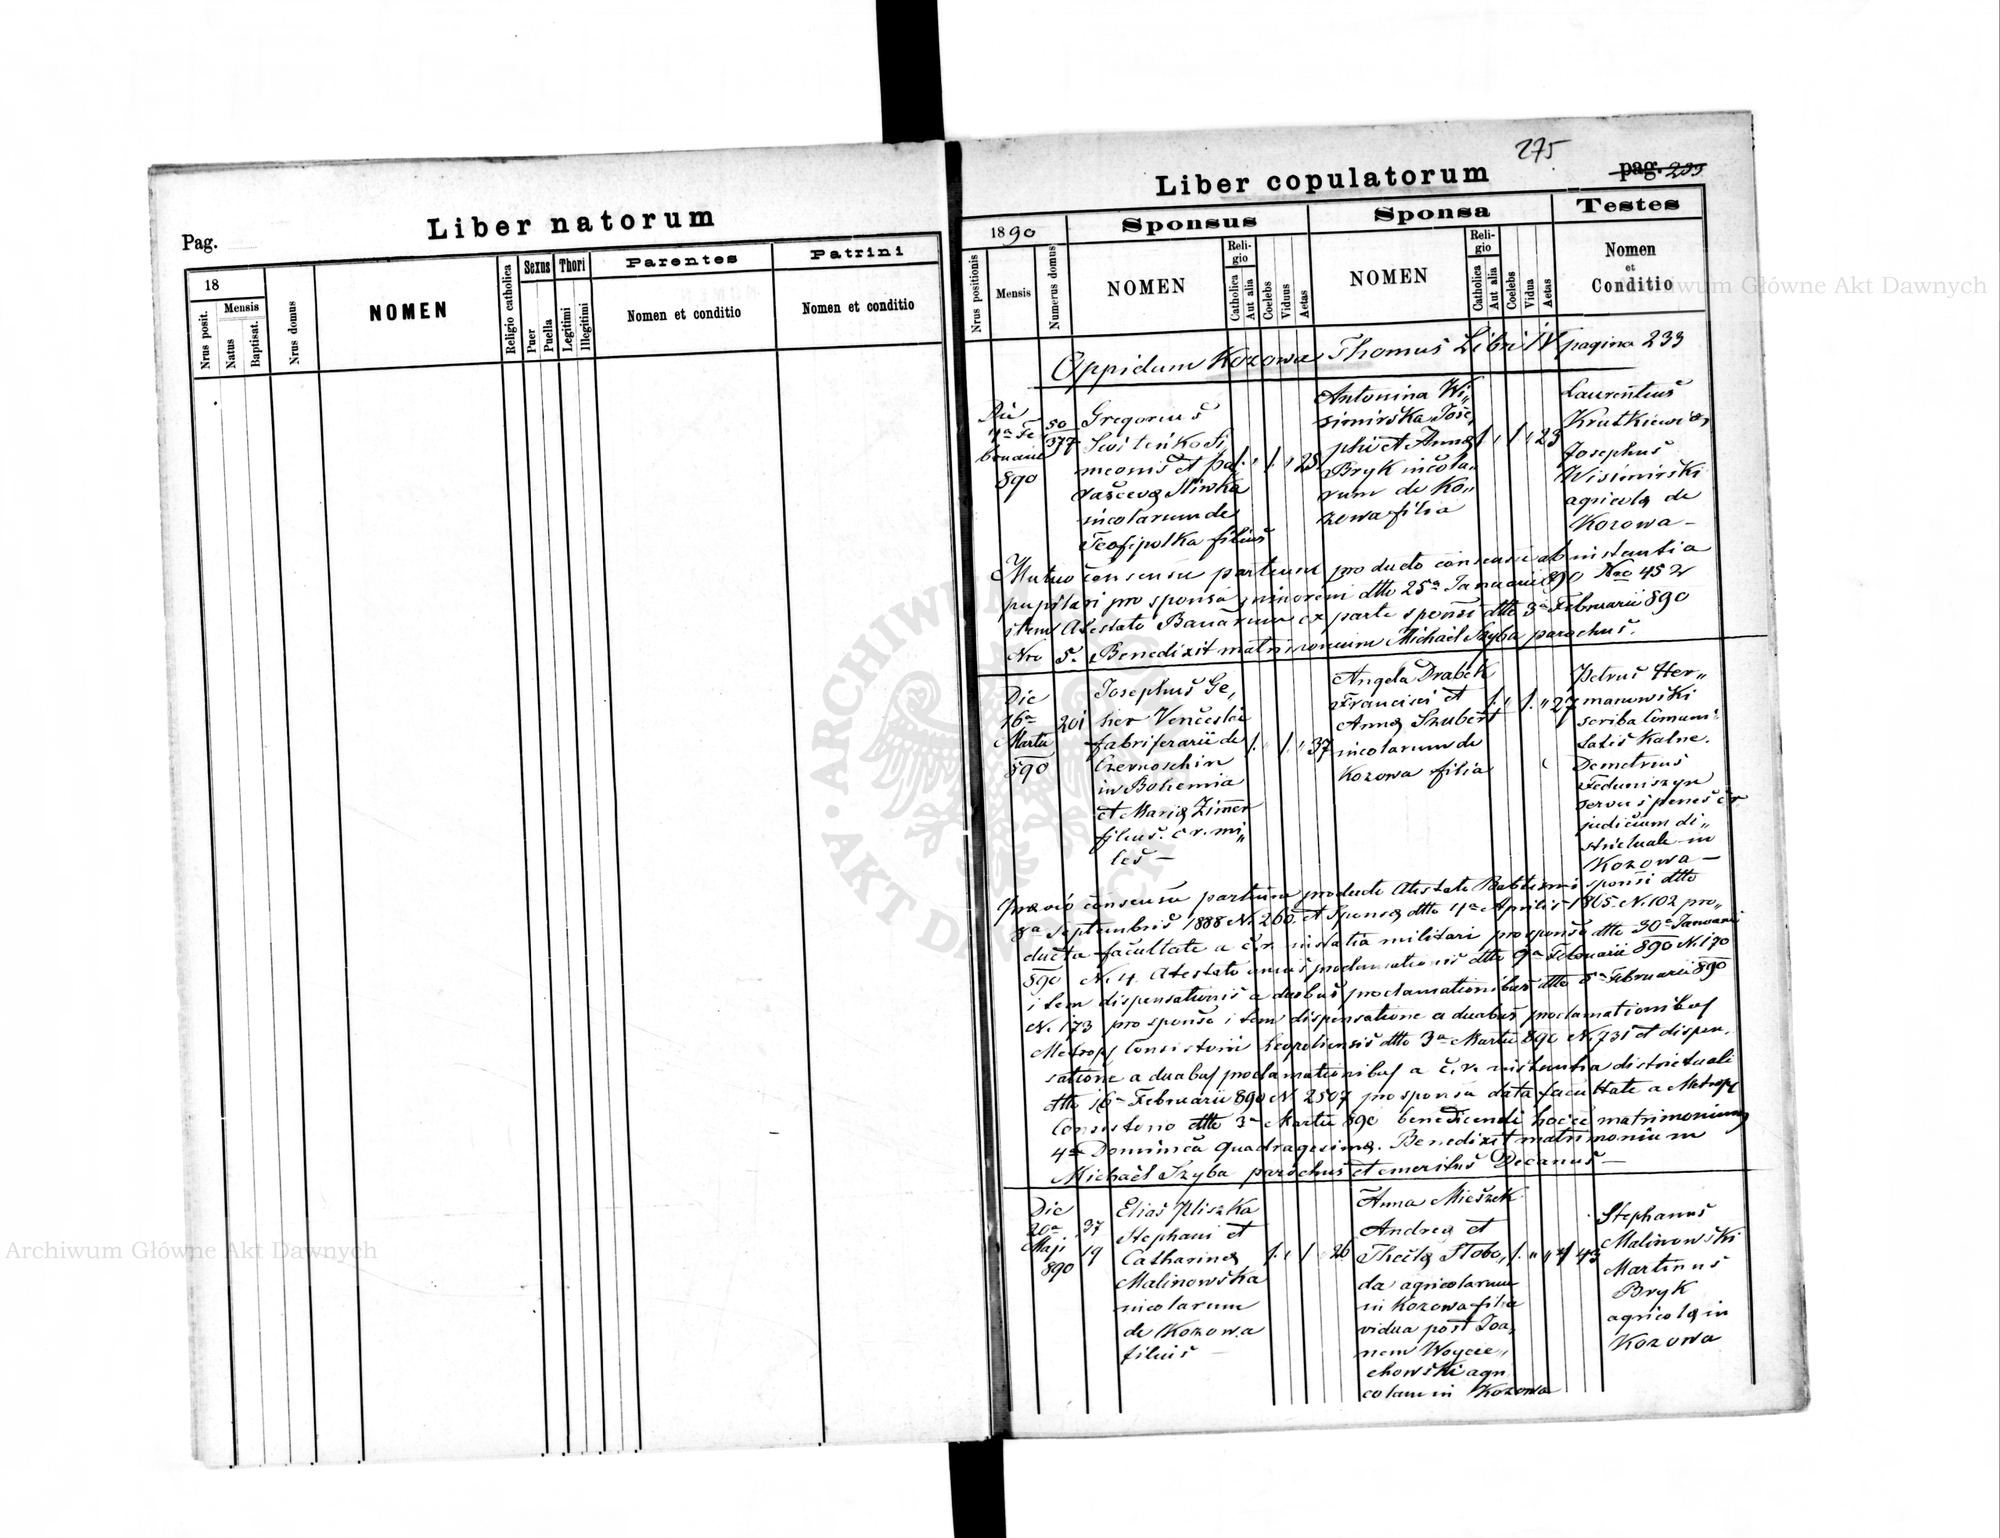 Pag.
Liber natorum
18
Nrus posit.
Mensis
Natus
Baptisat.
Nrus domus
NOMEN
Religio catholica
Sexus
Puer
Puella
Thori
Legitimi
Illegitimi
Parentes
Nomen et conditio
Patrini
Nomen et conditio
275
Liber copulatorum
pag. 233
1890
Nrus positionis
Mensis
Numerus domus
Sponsus
NOMEN
Reli-
gio
Catholica
Aut alia
Coelebs
Viduus
Aetas
Sponsa
NOMEN
Reli-
gio
Catholica
Aut alia
Coelebs
Vidua
Aetas
Testes
Nomen
et
Conditio
Oppidum Kozowa Thomus Libri IV pagina 233
Die
4a Fe
bruarii
890
50
377
Gregorius
Switeńko Si
meonis et Pa
rascevae Sliwka
incolarum de
Teofipolka filius
1 " 1 " 25
Antonina Wi"
simirska Jose,
phi et Annae
Bryk incola"
rum de Ko"
zowa filia
1 " 1 " 23
Laurentius
Krutkiewicz,
Josephus
Wisimirski
agricolae de
Kozowa –
Mutuo consensu partium producto consensu ab instantia
pupilari pro sponsa minoreni dtto 25a Januarii 890 Nro 452
item Atestato Bannorum ex parte sponsi dtto 3a Februarii 890
Nro 5. Benedixit matrimonium Michaël Szyba parochus.
Die
16a
Martii
890
201
Josephus Ge,
her Venceslai
fabri ferarii de
Czernoschin
in Bohemia
et Mariae Zimer
filius. c. r. mi"
les –
1 " 1 " 37
Angela Drabek
Francisci et
Annae Szubert
incolarum de
Kozowa filia
1 " 1 " 27
Petrus Her"
manowski
scriba Comuni"
tatis Kalne.
Demetrius
Feduniszyn
servus penes c r
judicium di"
strictuale in
Kozowa –
Praevio consensu partium producto Atestato Babtismi sponsi dtto
8a Septembris 1888 N. 260. et Sponsae dtto 4a Aprilis 1865 N. 102 pro"
ducta facultate a c. r. instatia militari pro sponso dtto 30a Januarii
890 N. 4. Atestato unius proclamationis dtto 9a Februarii 890 N. 170
item dispensationis a duobus proclamationibus dtto 5a Februarii 890
N. 173 pro sponso item dispensatione a duabus proclamationibus
Metropl Consistorii Leopoliensis dtto 3a Martii 890 N. 731 et dispen,
satione a duabus proclamationibus a c. r. instantia districtuali
dtto 16a Februarii 890 N. 2507 pro sponsa data facultate a Metropl
Consistorio dtto 3a Martii 890 benedicendi hocce matrimonium
4a Dominica Quadragesimae. Benedixit matrimonium
Michaël Szyba parochus et emeritus Decanus –
Die
20a
Maji
890
37
19
Elias Pliszka
Stephani et
Catharinae
Malinowska
incolarum
de Kozowa
filius –
1 " 1 " 26
Anna Mieszek
Andreae et
Theclae Stobo,
da agricolarum
in Kozowa filia
vidua post Joa,
nem Woycie"
chowski agri
colam in Kozowa
1 " " 1 43
Stephanus
Malinowski
Martinus
Bryk
agricolae in
Kozowa
Archiwum Główne Akt Dawnych
Archiwum Główne Akt Dawnych
ARCHIWUM GŁÓWNE AKT DAWNYCH